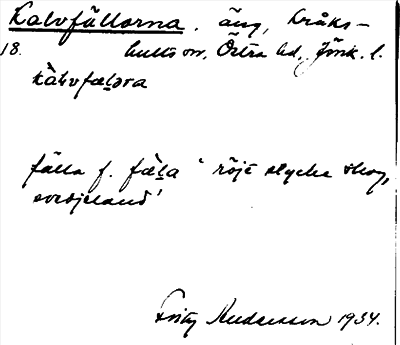 Kalvfällorna. äng, Kråks-
18. hults sn, Östra hd, Jönk. l.
kàlvfælora
fälla f. fæla 'röjt stycke skog,
svedjeland'
Fritz Andersson 1934.